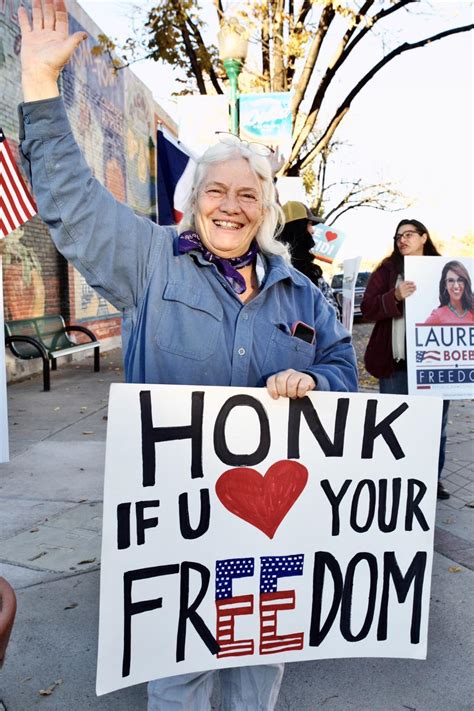 HONK
IF U YOUR
FREEDOM
LAUREN
BOEB
FREEDO